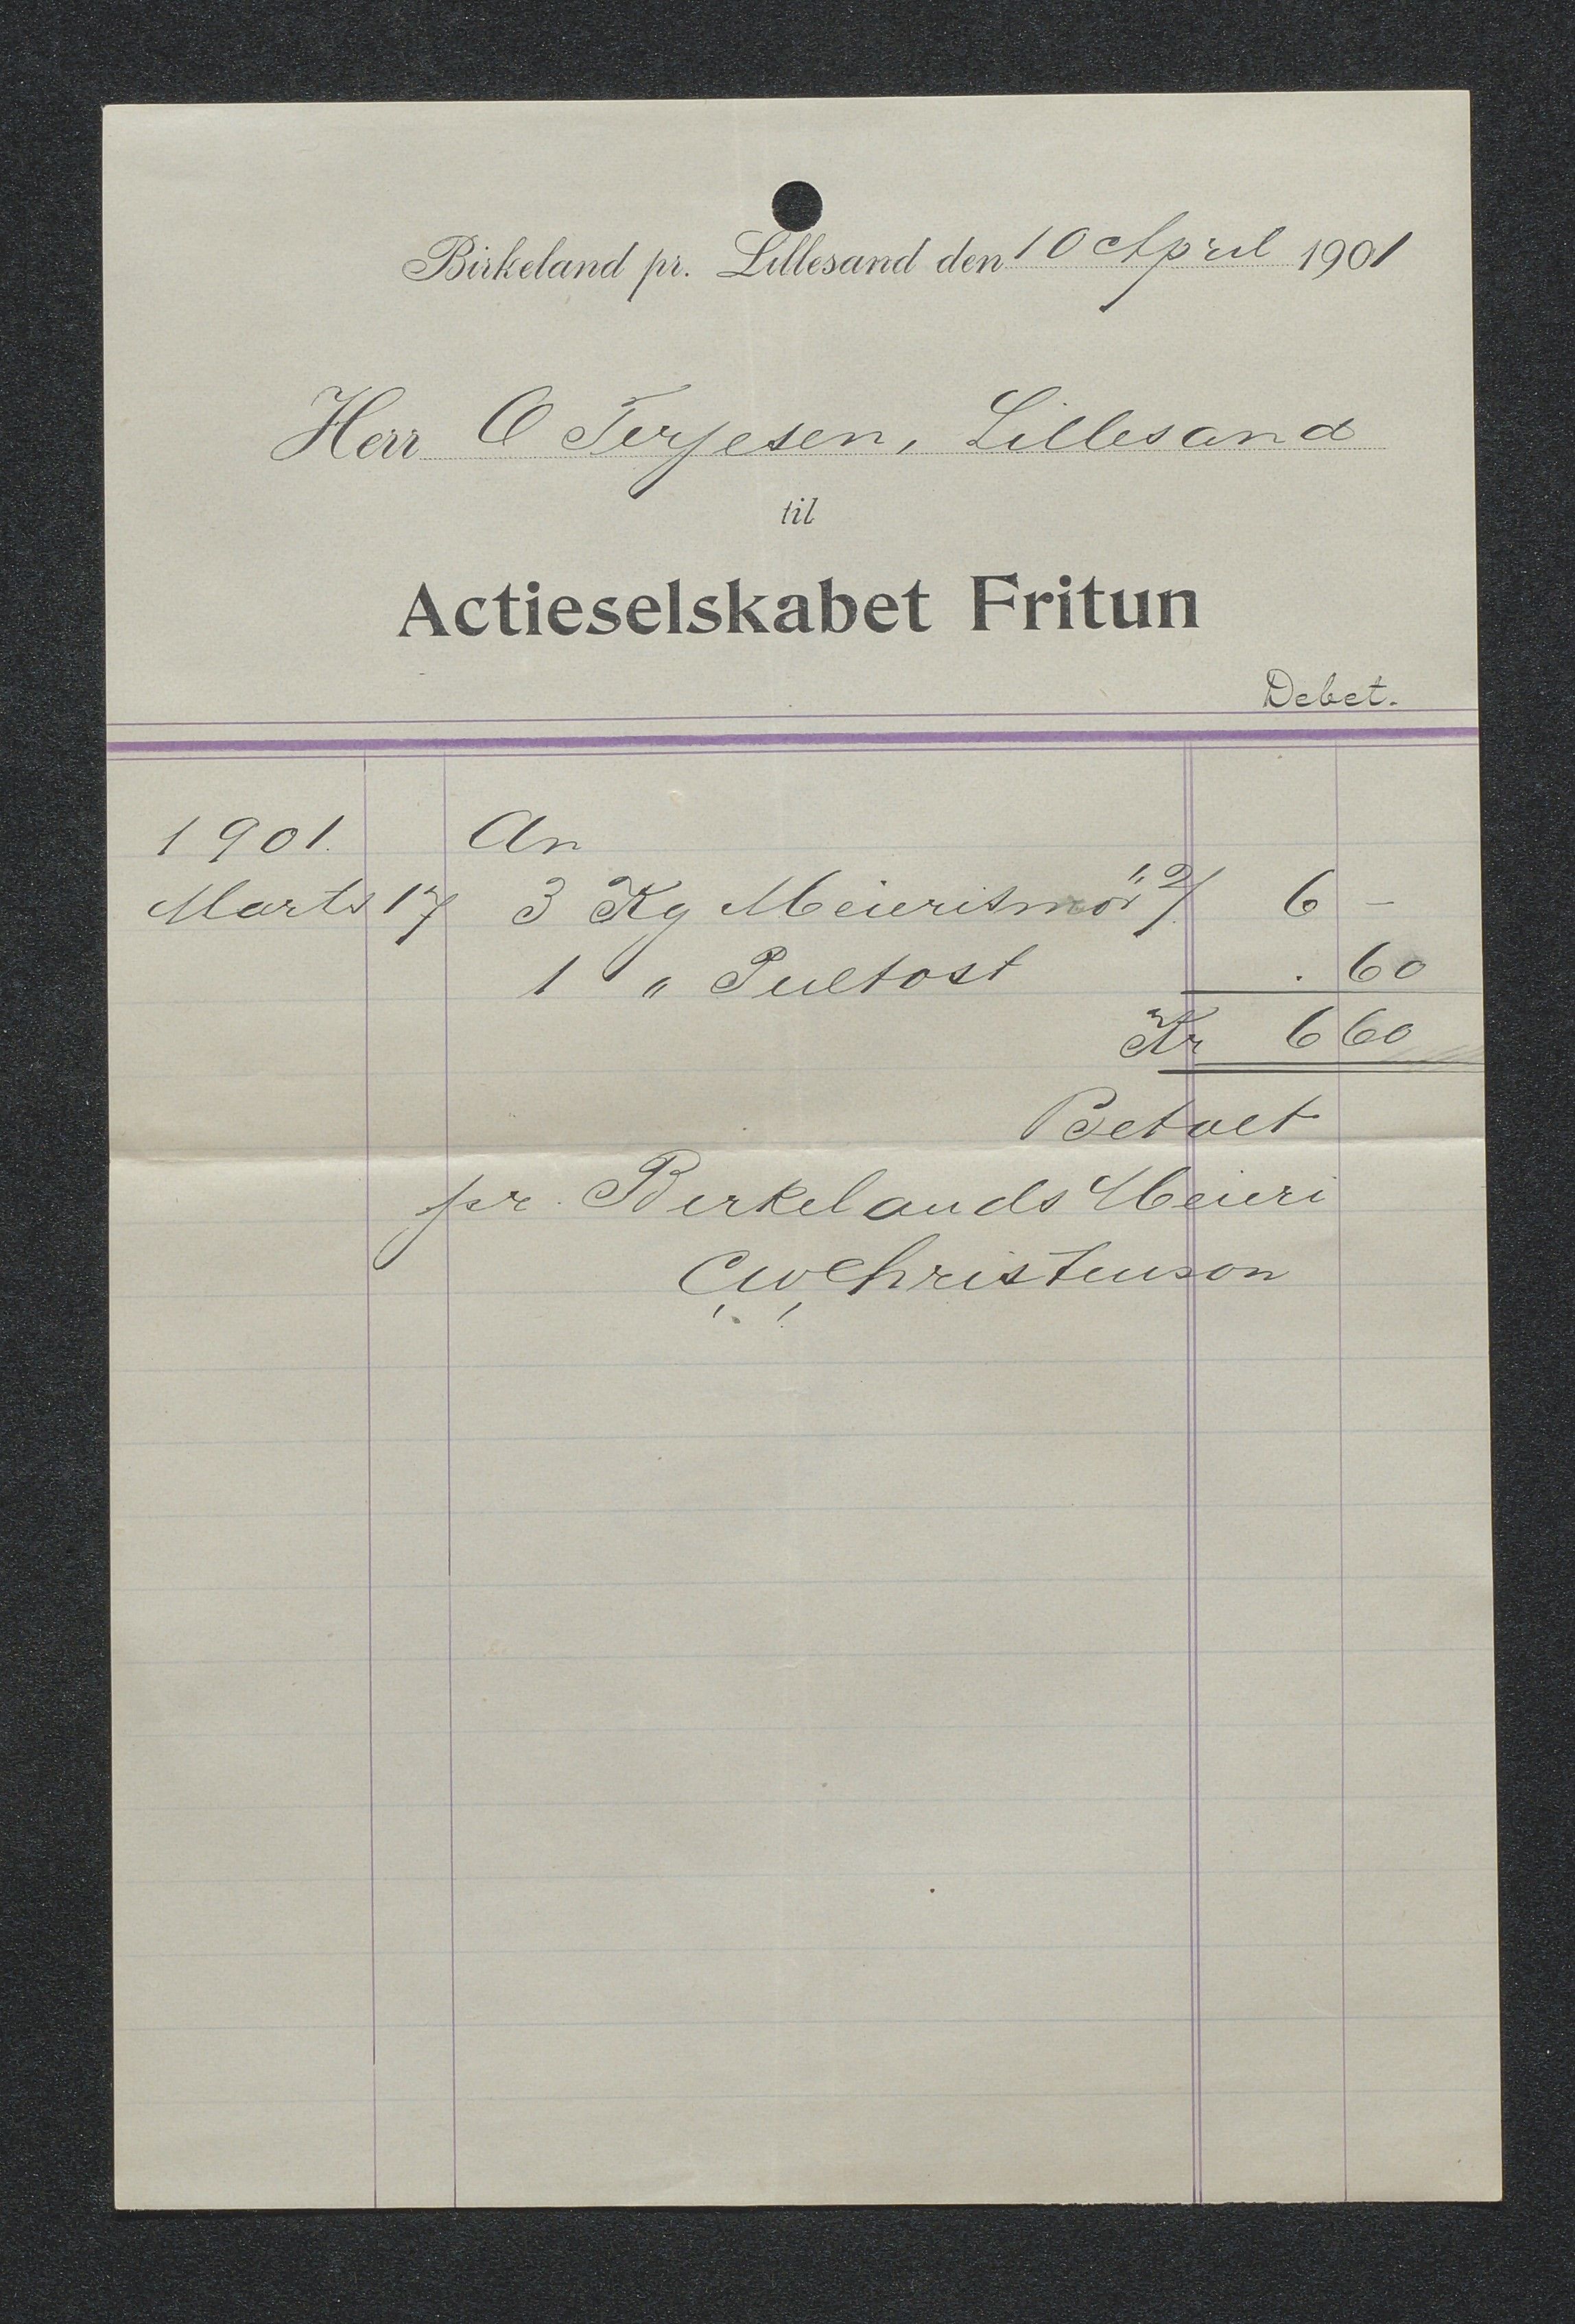 Birkeland pr. Lillesand den 10 April 1901
Herr O Terjesen, Lillesand
til
Actieselskabet Fritun
Debet.
1901. An
Marts 17 3 Kg Meierismör " 2/ 6 -
1 " Pultost . 60
Kr 6 60
Betalt
pr. Birkelands Meieri
CW Christenson